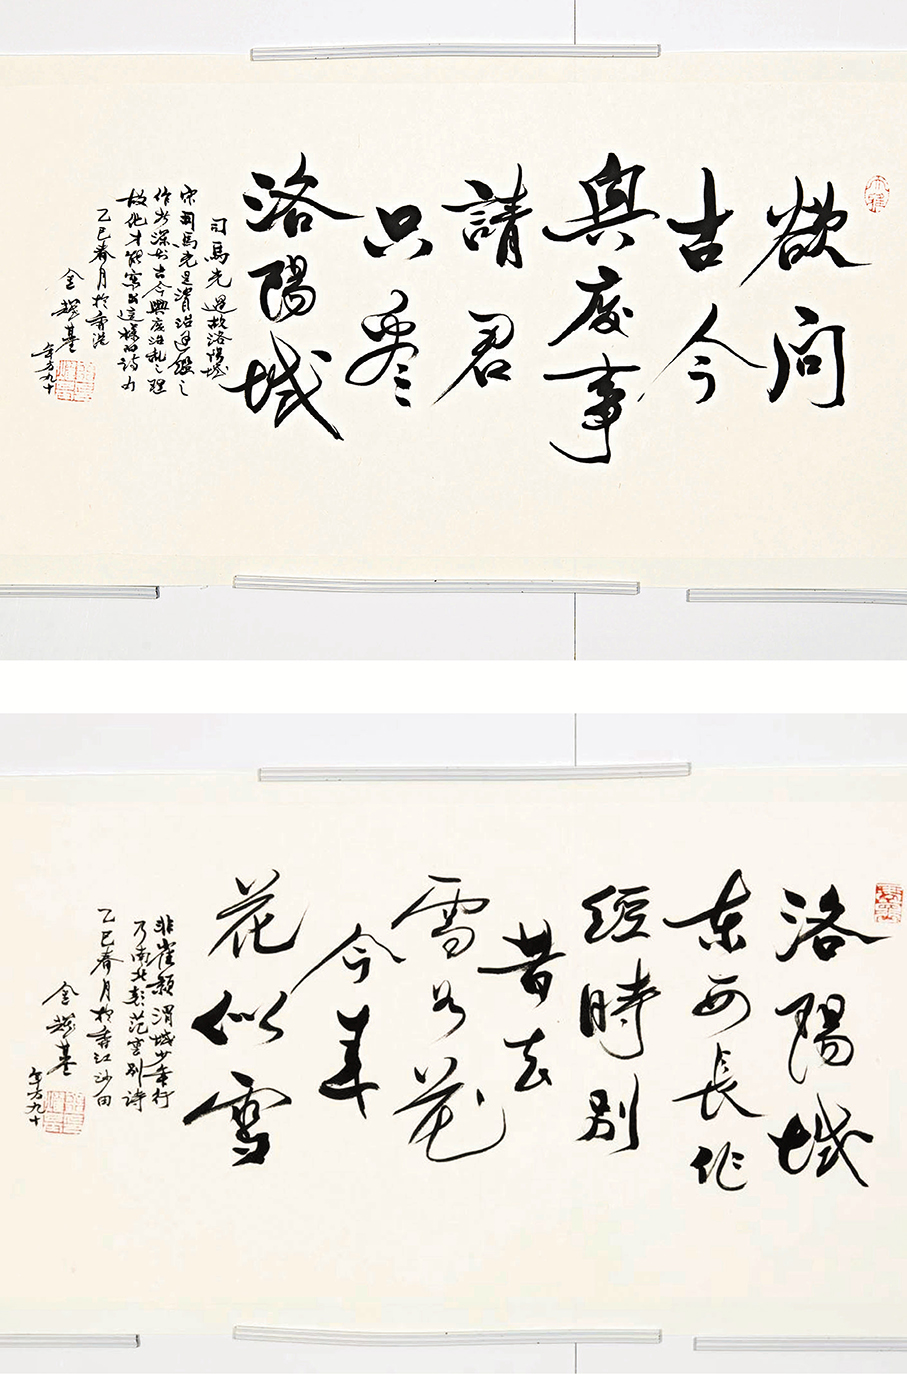 欲问
古今
興废事
請君
只看
洛陽城
司馬光過故洛陽城
宋司馬光是資治通鑑之
作者深於古今興废治乱之理
故他才能寫出這樣的詩句
乙巳春月於香港
金耀基
年方九十
洛陽城
东西長作
經時别
昔去
雪如花
今来
花似雪
非崔颢渭城少年行
乃南北朝范雲别詩
乙巳春月於香江沙田
金耀基
年方九十